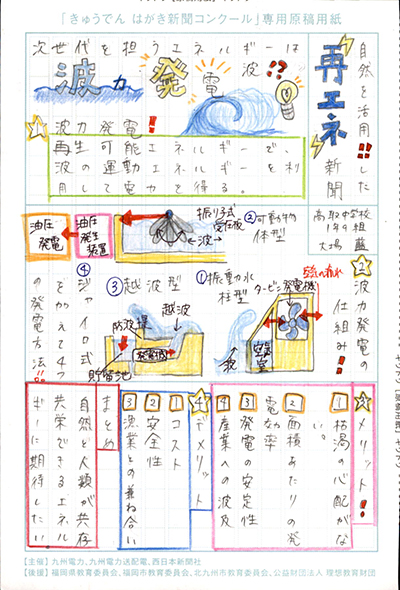 「きゅうでん はがき新聞コンクール」専用原稿用紙
自然を活用!!した
再エネ
新聞
高取中学校
1年9組
大場 藍
次世代を担うエネルギーは
波!?
波力発電
1
波力発電!!
再生可能エネルギーで、
波の運動エネルギーを利
用して電力を得る。
2
波力発電の
仕組み!!
①振動水
柱型
空気の流れ
タービン
発電機
空気室
波
②可動物
体型
振り子式
受圧板
波
油圧発生装置
油圧発電
③越波型
越波
防波堤
発電機
貯留池
④ジャイロ式
をかえて4つ
の発電方法!!
3
メリット!!
1 枯渇の心配がな
い
2 面積あたりの発
電効率
3 電力の安定性
4 産業への波及
4
デメリット
1 コスト
2 安全性
3 漁業との兼ね合い
まとめ
自然と人類が共存
共栄できるエネル
ギーに期待したい
【主催】九州電力、九州電力送配電、西日本新聞社
【後援】福岡県教育委員会、福岡市教育委員会、北九州市教育委員会、公益財団法人 理想教育財団